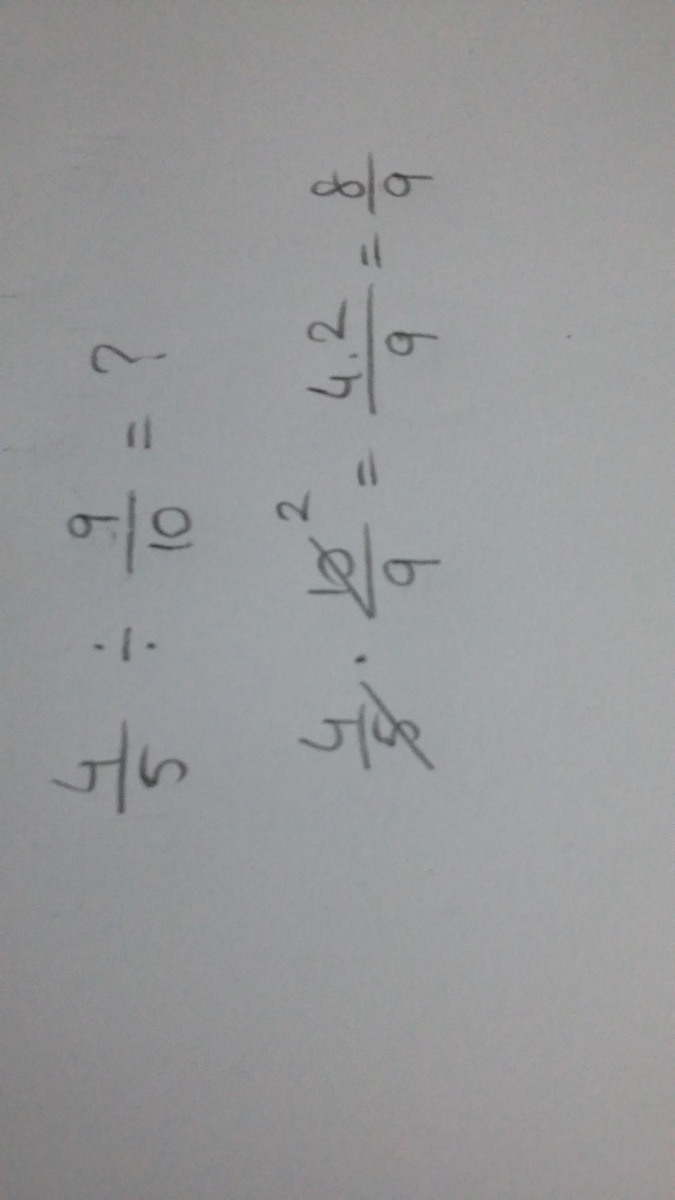 4/5 ÷ 9/10 = ?
4/5 · 10/9 2 = 4.2/9 = 8/9